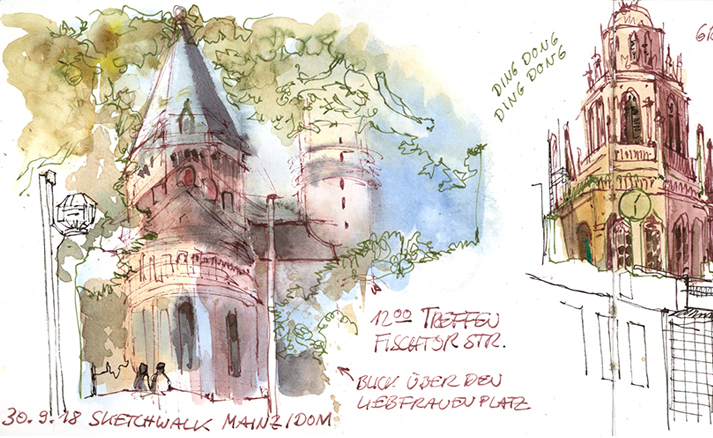 DING DONG
DING DONG
GR
1200 TREFFEN
FISCHTORSTR.
BLICK ÜBER DEN
LIEBFRAUENPLATZ
30.9.18 SKETCHWALK MAINZ/DOM